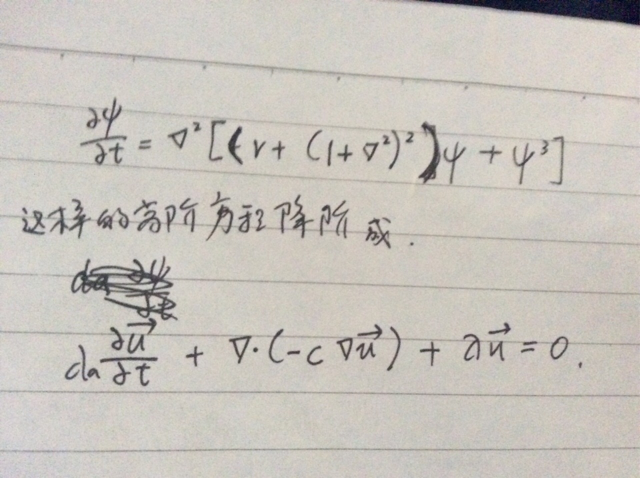 ∂ψ/∂t = ∇²[(r + (1+∇²)²)ψ + ψ³]
这样的高阶方程降阶成.
da ∂u⃗/∂t + ∇·(-c∇u⃗) + au⃗ = 0.